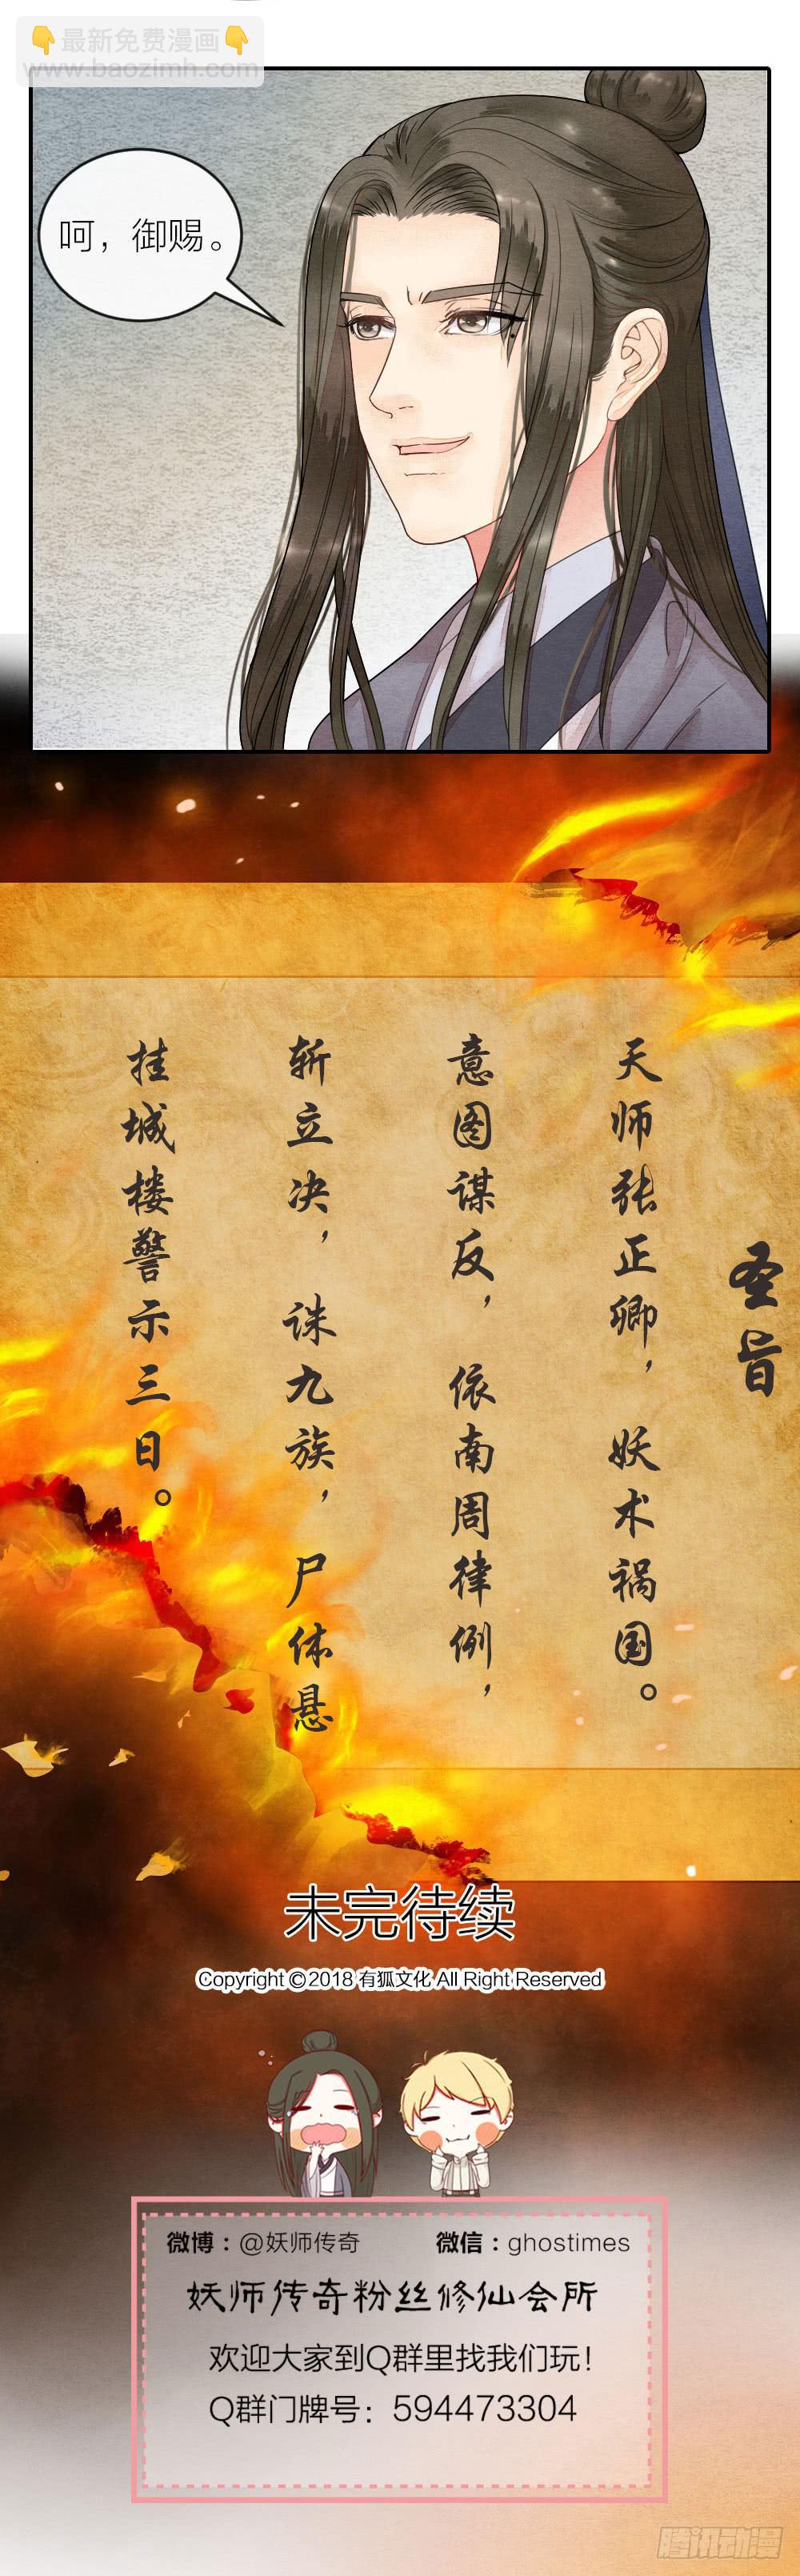 👇最新免费漫画👇
www.baozimh.com
呵，御赐。
圣旨
天师张正卿，妖术祸国。
意图谋反，依南周律例，
斩立决，诛九族，尸体悬
挂城楼警示三日。
未完待续
Copyright ©2018 有狐文化 All Right Reserved
微博：@妖师传奇 微信：ghostimes
妖师传奇粉丝修仙会所
欢迎大家到Q群里找我们玩！
Q群门牌号：594473304
腾讯动漫